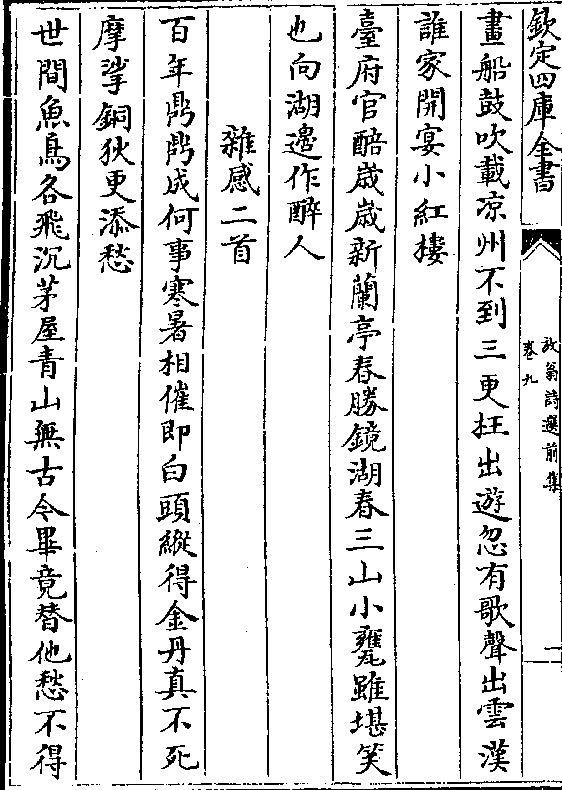 欽定四庫全書
放翁詩選前集
卷九
一
畫船鼓吹載凉州不到三更枉出遊忽有歌聲出雲漢
誰家開宴小紅樓
臺府官醅歲歲新蘭亭春勝鏡湖春三山小甕雖堪笑
也向湖邊作醉人
雜感二首
百年鼎鼎成何事寒暑相催即白頭縱得金丹真不死
摩挲銅狄更添愁
世間魚鳥各飛沉茅屋青山無古今畢竟替他愁不得